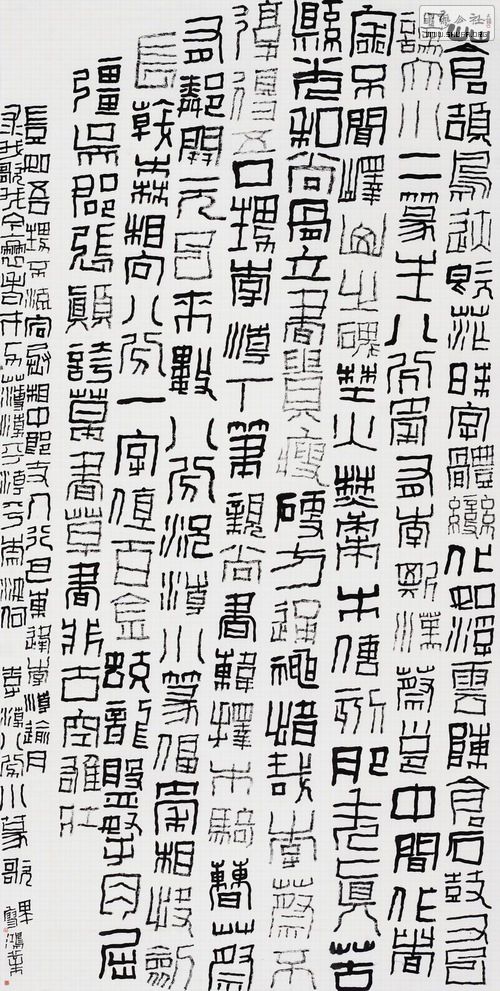 倉頡鳥迹既茫昧字體變化如浮雲陳倉石鼓又已
訛大小二篆生八分秦有李斯漢蔡邕中間作者
寂不聞嶧山之碑野火焚棗木傳刻肥失真苦
縣光和尚骨立書貴瘦硬方通神惜哉李蔡不
復得吾甥李潮下筆親尚書韓擇木騎曹蔡
有鄰開元已來數八分況潮小篆逼秦相快劍
長戟森相向八分一字值百金蛟龍盤拏肉屈
彊吳郡張顛誇草書草書非古空雄壯
豈如吾甥不流宕丞相中郎丈人行巴東逢李潮逾月
求我歌我今衰老才力薄潮乎潮乎奈汝何 李潮八分小篆歌